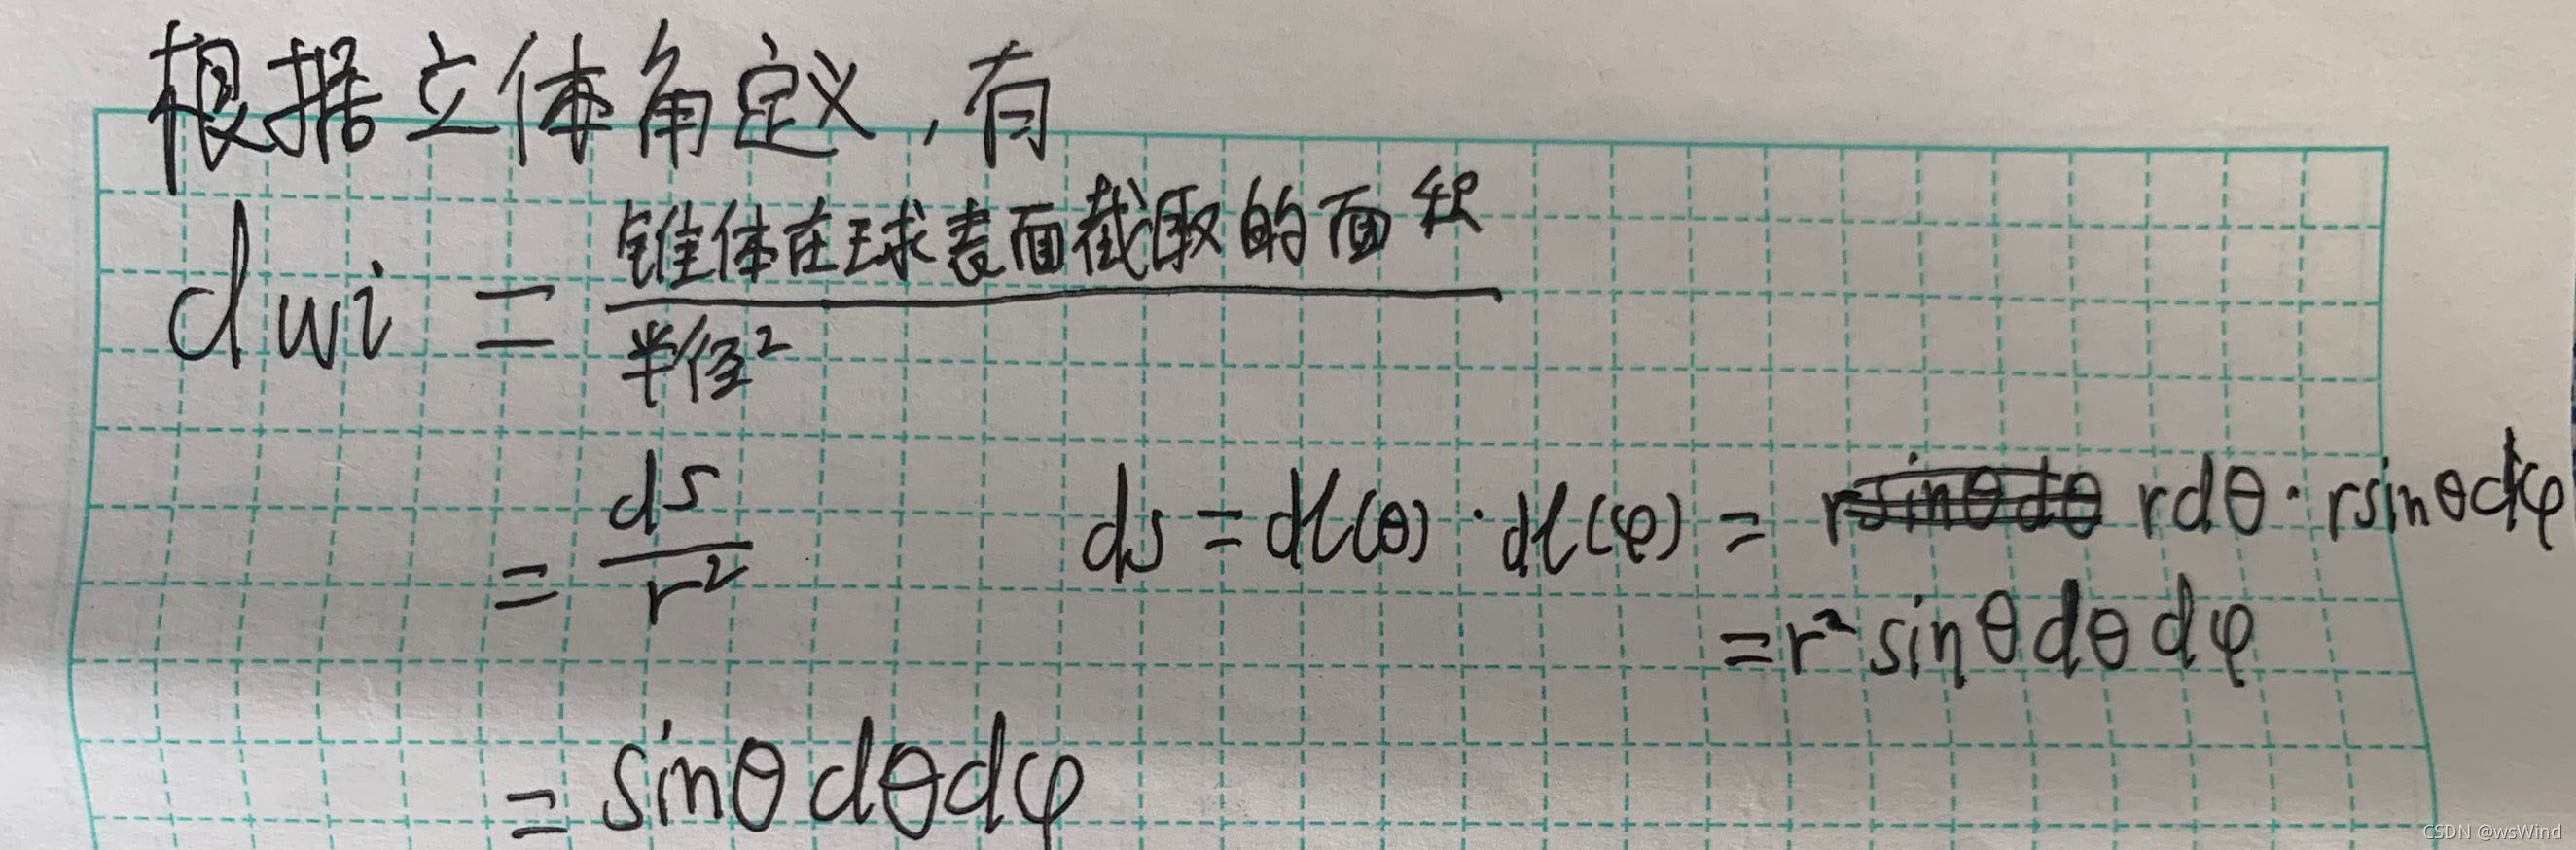 根据立体角定义,有
dwi = 锥体在球表面截取的面积 / 半径²
= ds / r²
ds = dl(θ) · dl(φ) = rdθ · rsinθdφ
= r² sinθ dθ dφ
= sinθ dθ dφ
CSDN @wsWind